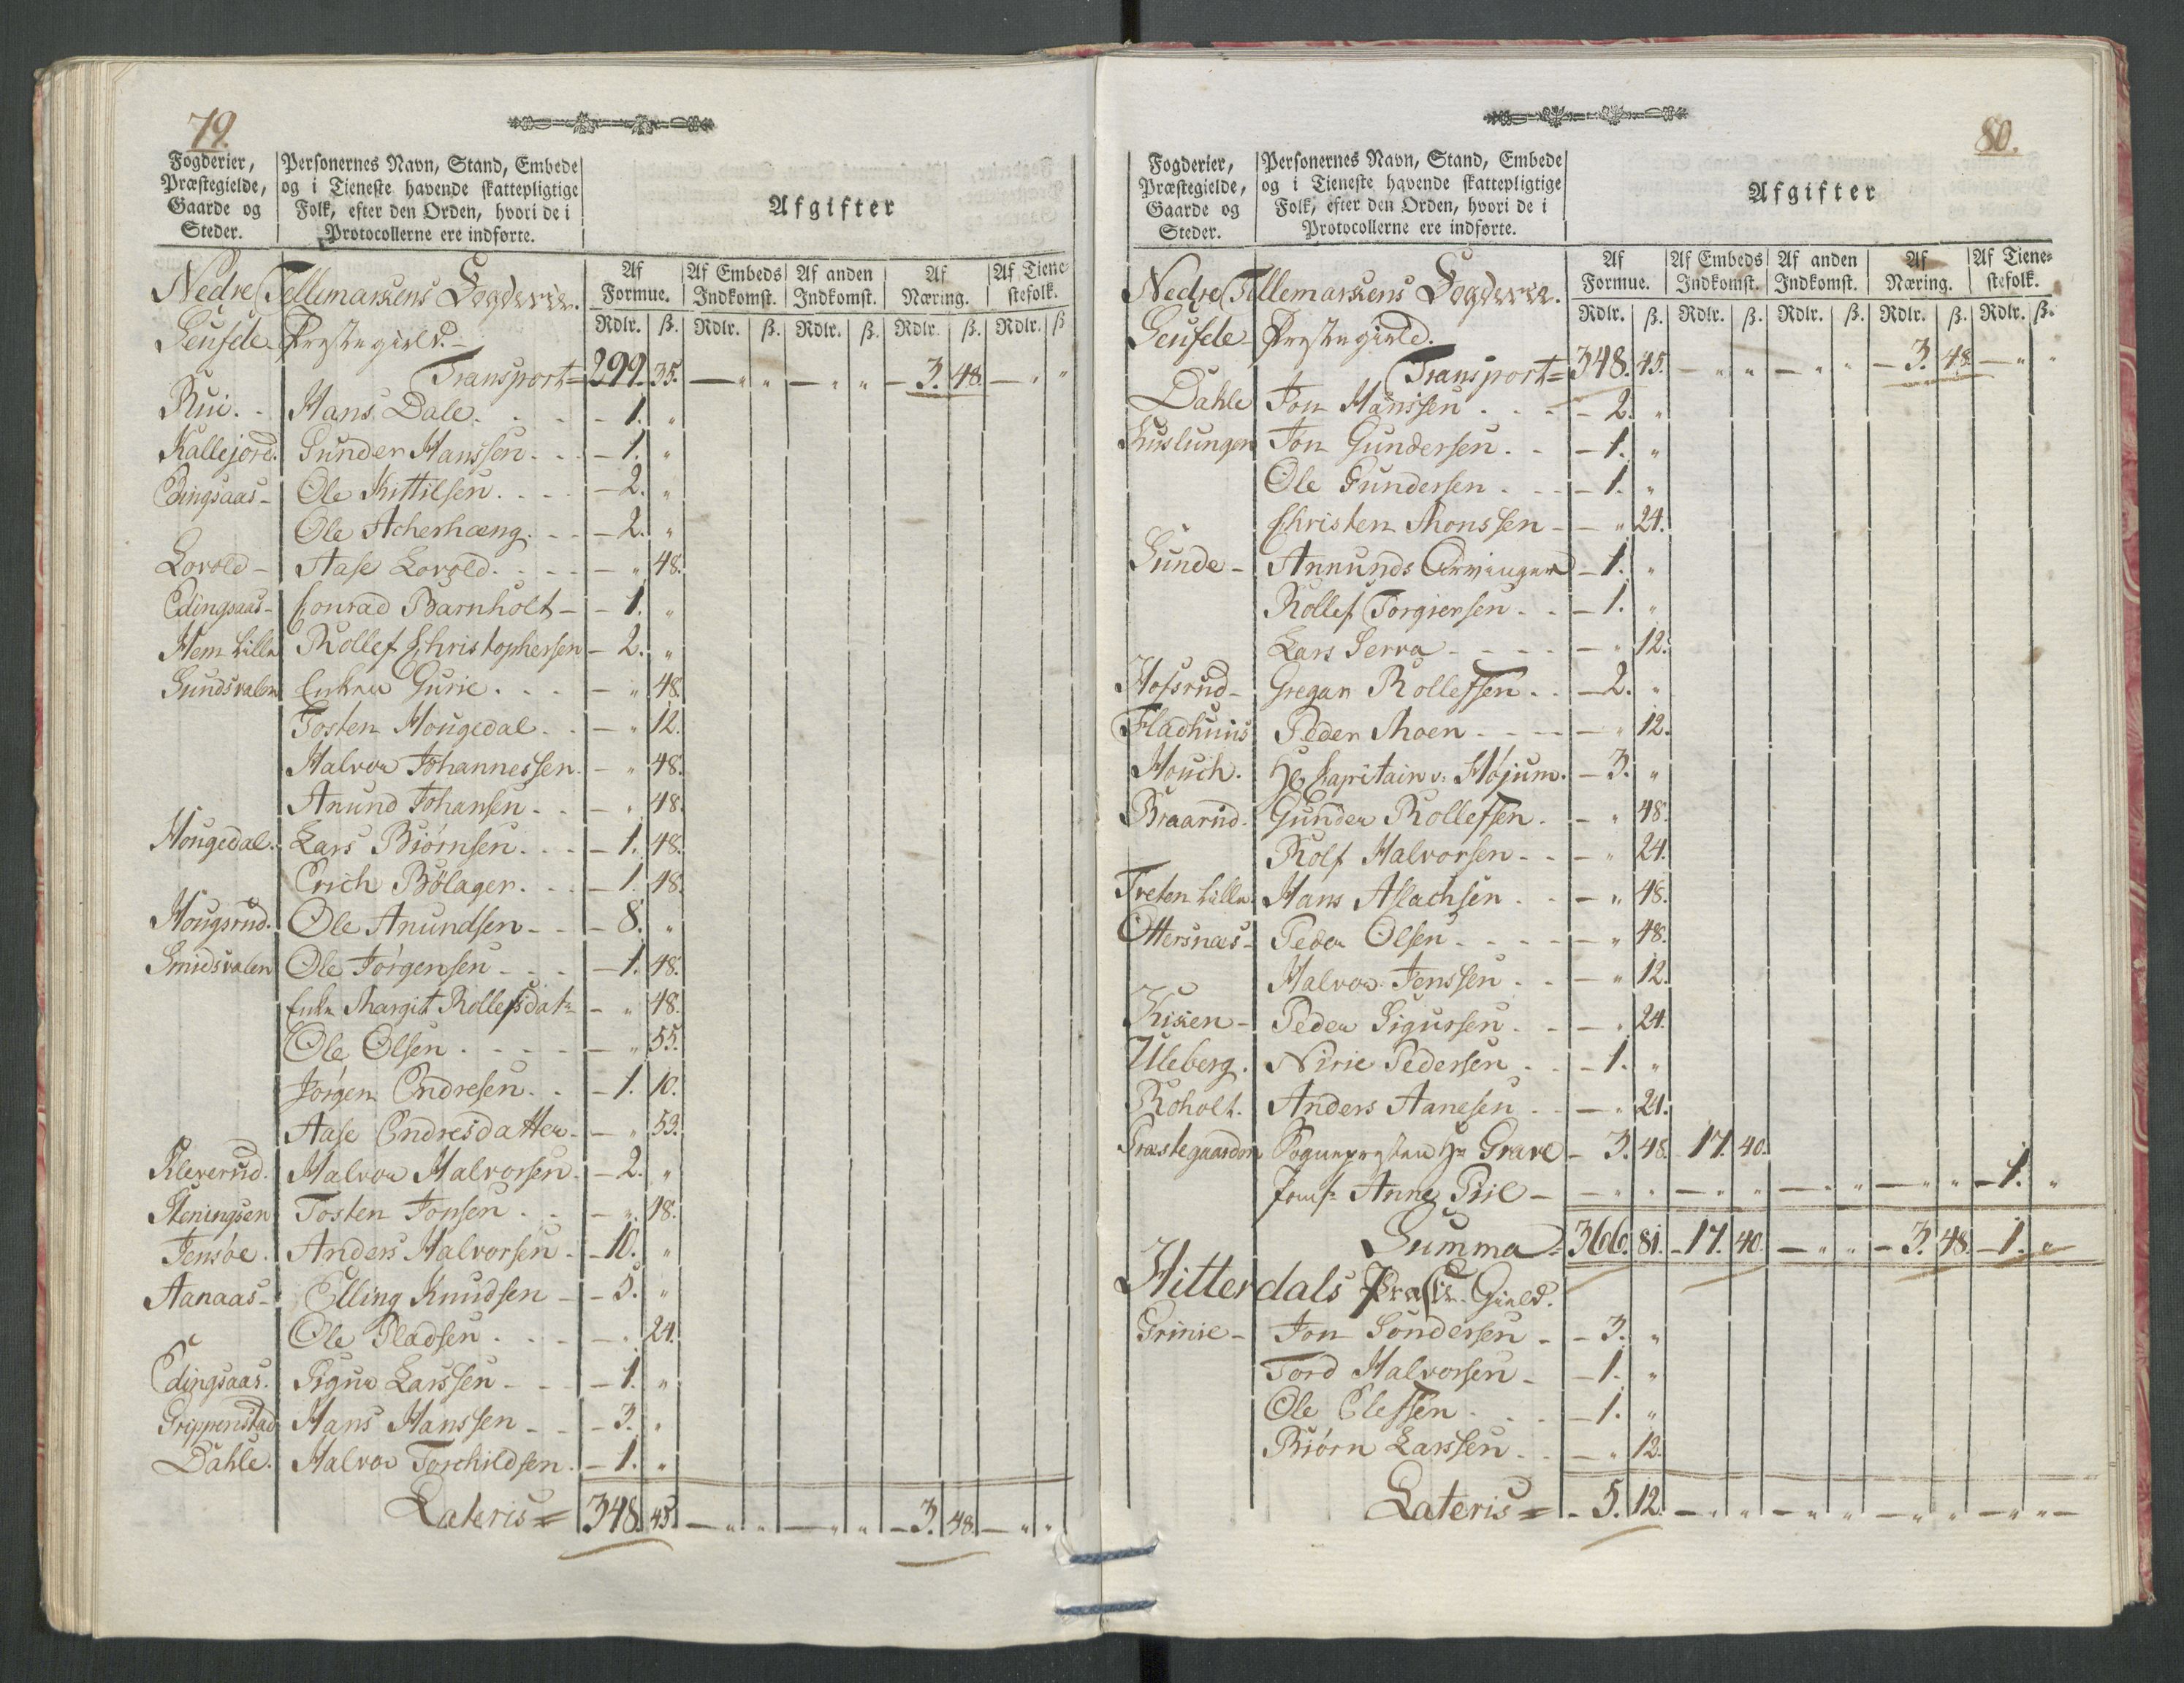 79.
Fogderier, Præstegielde, Gaarde og Steder. | Personernes Navn, Stand, Embede og i Tieneste havende skattepligtige Folk, efter den Orden, hvori de i Protocollerne ere indførte. | Afgifter
Af Formue. | Af Embeds Indkomst. | Af anden Indkomst. | Af Næring. | Af Tienestefolk.
Rdlr. | ß. | Rdlr. | ß. | Rdlr. | ß. | Rdlr. | ß. | Rdlr. | ß
Nedre Tellemarkens Fogderie.
Seufde Præstegield.
Transport = 299. 35. — " " — " " — 3. 48. — " "
Rui. Hans Dale. - 1. "
Kallejord. Gunder Hanssen - 1. "
Edingsaas - Ole Kittilsen - 2. "
Ole Acherhæng. - 2. "
Lovold - Aase Lovold. - " 48.
Edingsaas - Conrad Barnholt - 1. "
Hem Lille Rollef Christophersen - 2. "
Sundsvalen Enken Gurie. - " 48.
Tosten Hougedal. - " 12.
Halvor Johannessen. - " 48.
Anund Johansen - " 48.
Hougedal. Lars Biørnsen - 1. 48.
Erich Bølager. - 1. 48.
Hougsrud. Ole Anundsen - 8. "
Smidsvalen Ole Jørgensen - 1. 48.
Enke Margit Rollefsdatr - " 48.
Ole Olsen - " 55.
Jørgen Endresen - 1. 10.
Aase Endresdatter - " 53.
Kleverud. Halvor Halvorsen - 2. "
Steningsen Tosten Jonsen - " 18.
Jensøe. Anders Halvorsen - 10. "
Aanaas - Elling Knudsen - 5. "
Ole Pladsen - " 24.
Edingsaas. Sigur Larssen - 1. "
Grippenstad Hans Hanssen - 3. "
Dahle. Halvor Torchildsen. - 1. "
Lateris = 348. 45. — " " — " " — 3. 48. — " "
80.
Fogderier, Præstegielde, Gaarde og Steder. | Personernes Navn, Stand, Embede og i Tieneste havende skattepligtige Folk, efter den Orden, hvori de i Protocollerne ere indførte. | Afgifter
Af Formue. | Af Embeds Indkomst. | Af anden Indkomst. | Af Næring. | Af Tienestefolk.
Rdlr. | ß. | Rdlr. | ß. | Rdlr. | ß. | Rdlr. | ß. | Rdlr. | ß.
Nedre Tellemarkens Fogderie.
Seufde Præstegield.
Transport = 348. 45. — " " — " " — 3. 48. — " "
Dahle Jon Hanssen - 2. "
Jon Gundersen. - 1. "
Ole Gundersen - 1. "
Christen Monssen - " 24.
Sunde - Annunds Arvinger - 1. "
Rollef Torgiersen - 1. "
Lars Serra - " 12.
Hofsrud - Gregar Rollefsen - 2. "
Fladhuus Peder Moen - " 12.
Houch. Hr Capitain v. Højum. - 3. "
Braarud. Gunder Rollefsen. - " 48.
Rolf Halvorsen - " 24.
Treten Lille Hans Aslachsen - " 48.
Ottersnæs - Peder Olsen - " 48.
Halvor Jenssen - " 12.
Kisen - Peder Sigursen - " 24.
Uleberg. Nirie Pedersen - 1. "
Roholt. Anders Aanesen - " 24.
Præstegaarden Sognepræsten Hr Grave - 3. 48. 17. 40.
Jomfr Anne Piil - — " " — " " — " " — " " - 1. "
Summa = 366. 81. - 17. 40. — " " - 3. 48. - 1. "
Hitterdals Præste Gield.
Grinie - Jon Søndersen - 3. "
Tord Halvorsen - 1. "
Ole Olefsen - 1. "
Biørn Larssen - " 12.
Lateris = - 5. 12. — " " — " " — " " — " "